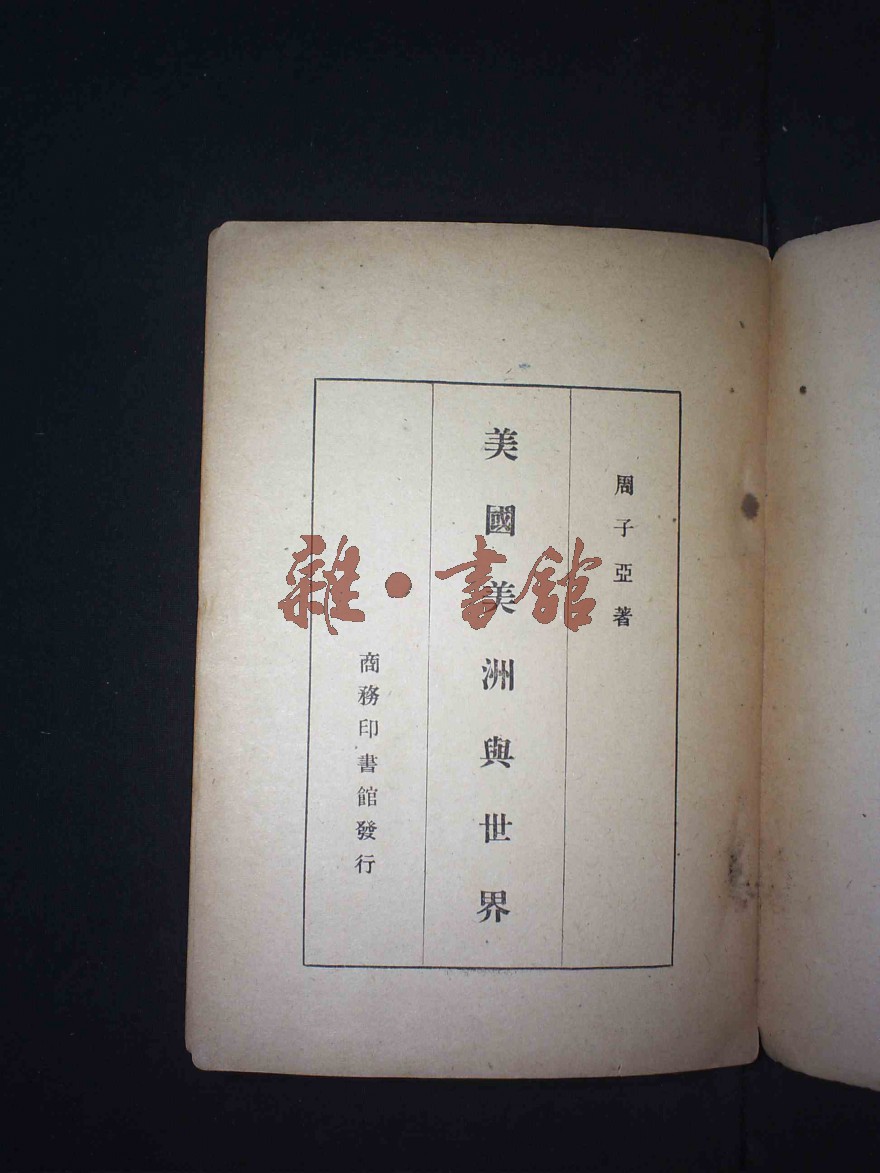 周子亞著
美國美洲與世界
商務印書館發行
雜·書館